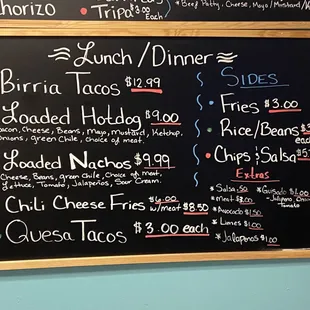 horizo
Tripa $3.00
Each
*Beef Patty, Cheese, Mayo/Mustard/K
Lunch/Dinner
Birria Tacos $12.99
Loaded Hotdog $9.00
acon, Cheese, Beans, Mayo, Mustard, Ketchup,
nions, green Chile, choice of meat.
Loaded Nachos $9.99
Cheese, Beans, green Chile, Choice of meat,
Lettuce, Tomato, Jalapeños, Sour Cream.
Chili Cheese Fries $6.00
w/meat $8.50
Quesa Tacos $3.00 each
Sides
• Fries $3.00
• Rice/Beans $3
each
• Chips & Salsa $5.
Extras
* Salsa .50
* Meat $3.00
* Avocado $1.50
* Limes $1.00
* Jalapenos $1.00
* Guisado $1.00
- Jalapeno, Onion,
Tomato